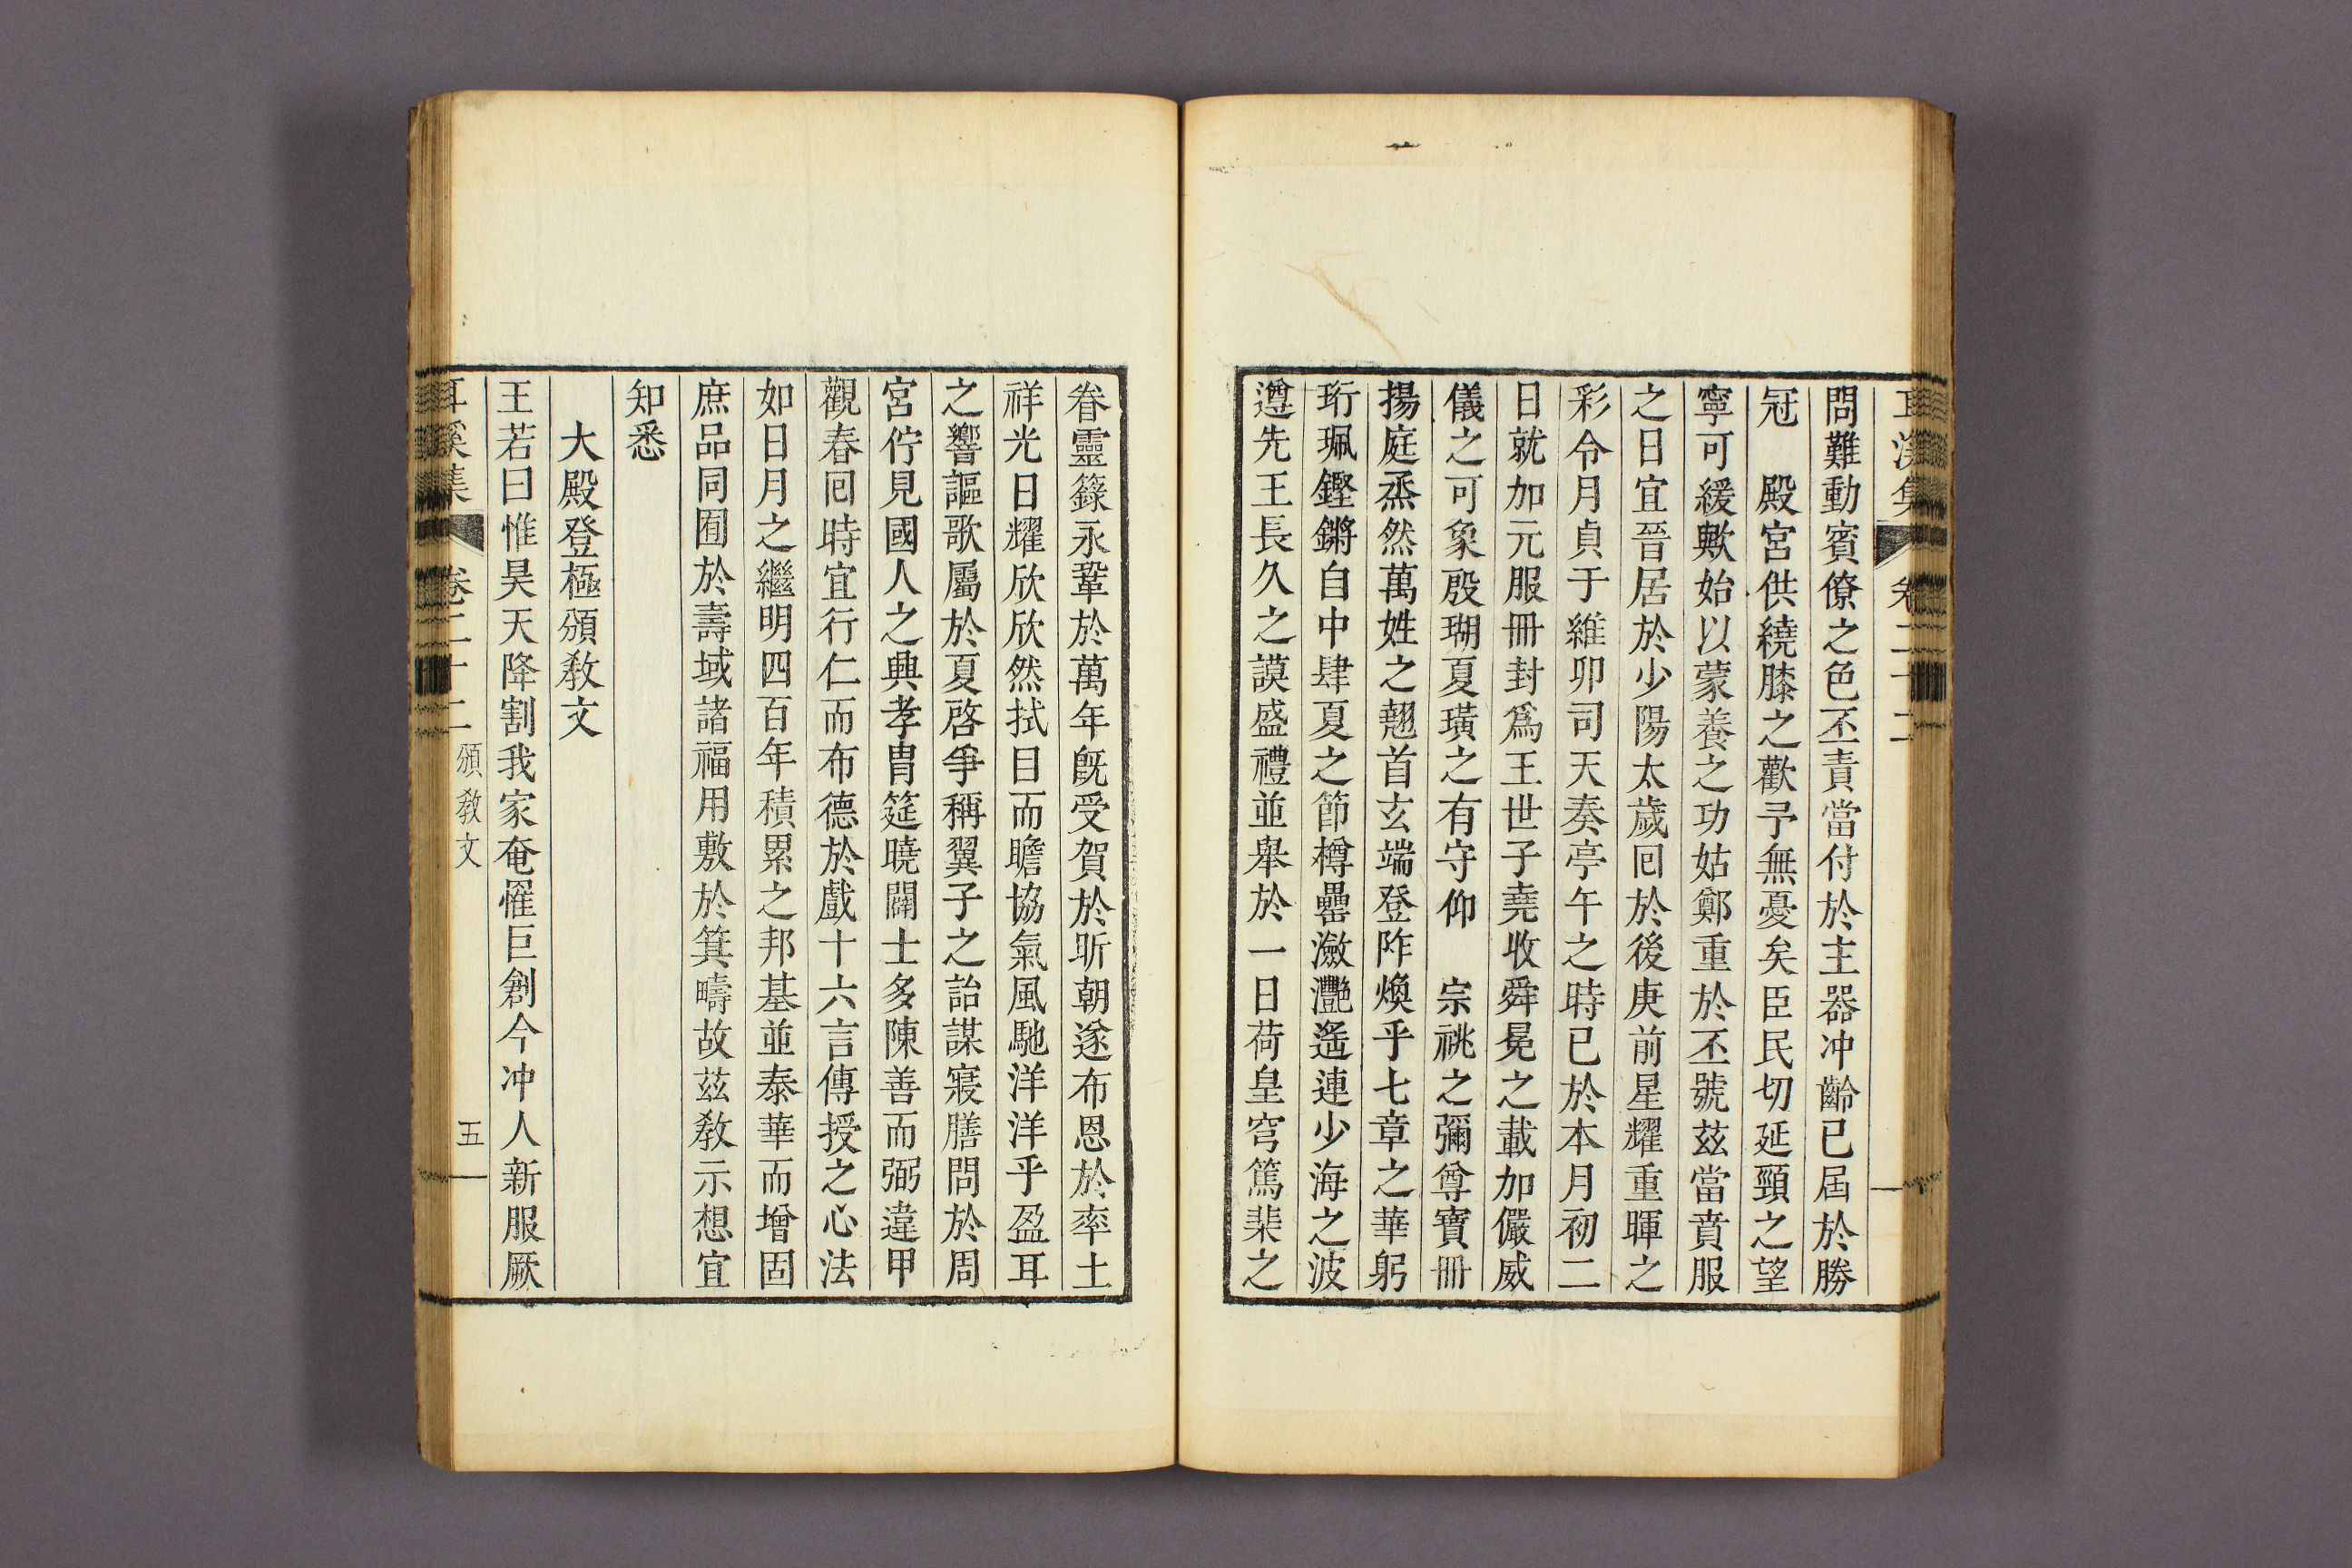 耳溪集 卷二十二
問難動賓僚之色丕責當付於主器冲齡已屆於勝
冠　殿宮供繞膝之歡予無憂矣臣民切延頸之望
寧可緩歟始以蒙養之功姑鄭重於丕號茲當賁服
之日宜晉居於少陽太歲回於後庚前星耀重暉之
彩令月貞于維卯司天奏亭午之時已於本月初二
日就加元服冊封爲王世子堯收舜冕之載加儼威
儀之可象殷瑚夏璜之有守仰　宗祧之彌尊寶冊
揚庭烝然萬姓之翹首玄端登阼煥乎七章之華躬
珩珮鏗鏘自中肆夏之節樽罍瀲灧遙連少海之波
遵先王長久之謨盛禮並舉於一日荷皇穹篤棐之
眷靈籙永鞏於萬年旣受賀於昕朝遂布恩於率土
祥光日耀欣欣然拭目而瞻協氣風馳洋洋乎盈耳
之響謳歌屬於夏啓爭稱翼子之詒謀寢膳問於周
宮佇見國人之興孝胄筵曉闢士多陳善而弼違甲
觀春回時宜行仁而布德於戲十六言傳授之心法
如日月之繼明四百年積累之邦基並泰華而增固
庶品同囿於壽域諸福用敷於箕疇故茲敎示想宜
知悉
大殿登極頒敎文
王若曰惟昊天降割我家奄罹巨創今冲人新服厥
耳溪集 卷二十二 頒敎文 五